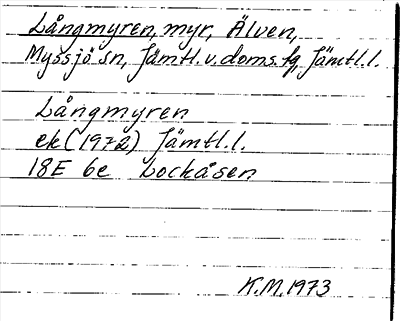 Långmyren, myr, Älven,
Myssjö sn, Jämtl. v. doms. fg, Jämtl. l.
Långmyren
ek (1972) Jämtl. l.
18E 6e Lockåsen
K.M. 1973